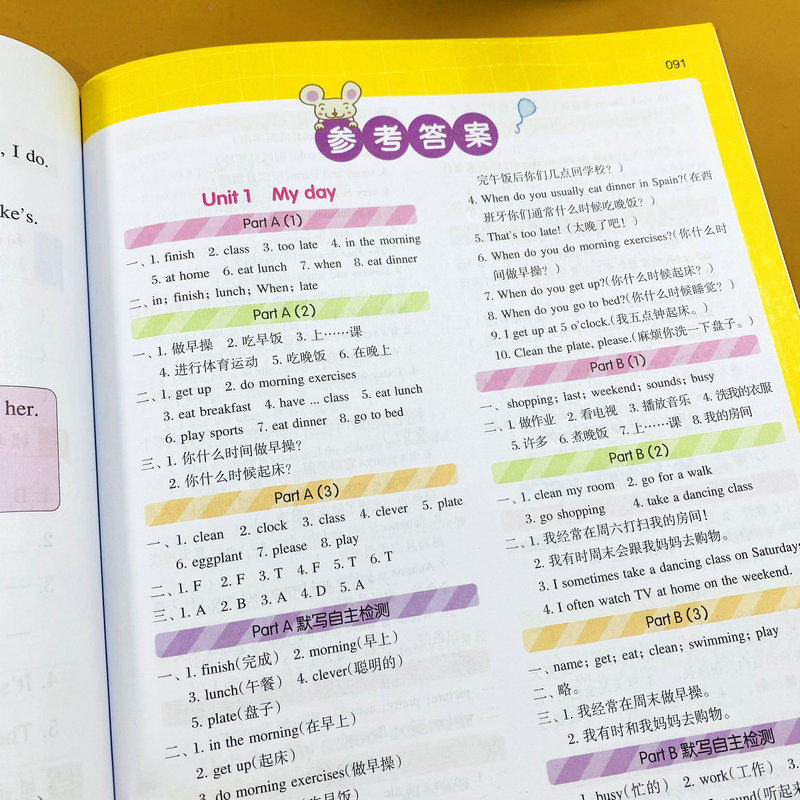 , I do.
ke's.
her.
091
参考答案
Unit 1 My day
Part A (1)
一、1. finish 2. class 3. too late 4. in the morning
5. at home 6. eat lunch 7. when 8. eat dinner
二、in; finish; lunch; When; late
Part A (2)
一、1. 做早操 2. 吃早饭 3. 上……课
4. 进行体育运动 5. 吃晚饭 6. 在晚上
二、1. get up 2. do morning exercises
3. eat breakfast 4. have ... class 5. eat lunch
6. play sports 7. eat dinner 8. go to bed
三、1. 你什么时间做早操?
2. 你什么时候起床?
Part A (3)
一、1. clean 2. clock 3. class 4. clever 5. plate
6. eggplant 7. please 8. play
二、1. F 2. F 3. T 4. F 5. T 6. T
三、1. A 2. B 3. A 4. D 5. A
Part A 默写自主检测
一、1. finish(完成) 2. morning(早上)
3. lunch(午餐) 4. clever(聪明的)
5. plate(盘子)
二、1. in the morning(在早上)
2. get up(起床)
3. do morning exercises(做早操)
吃早饭)
完午饭后你们几点回学校?)
4. When do you usually eat dinner in Spain?(在西
班牙你们通常什么时候吃晚饭?)
5. That's too late!(太晚了吧!)
6. When do you do morning exercises?(你什么时
间做早操?)
7. When do you get up?(你什么时候起床?)
8. When do you go to bed?(你什么时候睡觉?)
9. I get up at 5 o'clock.(我五点钟起床。)
10. Clean the plate, please.(麻烦你洗一下盘子。)
Part B (1)
一、shopping; last; weekend; sounds; busy
二、1. 做作业 2. 看电视 3. 播放音乐 4. 洗我的衣服
5. 许多 6. 煮晚饭 7. 上……课 8. 我的房间
Part B (2)
一、1. clean my room 2. go for a walk
3. go shopping 4. take a dancing class
二、1. 我经常在周六打扫我的房间!
2. 我有时周末会跟我妈妈去购物。
3. I sometimes take a dancing class on Saturdays
4. I often watch TV at home on the weekend.
Part B (3)
一、name; get; eat; clean; swimming; play
二、略。
三、1. 我经常在周末做早操。
2. 我有时和我妈妈去购物。
Part B 默写自主检测
一、1. busy(忙的) 2. work(工作) 3.
sound(听起来